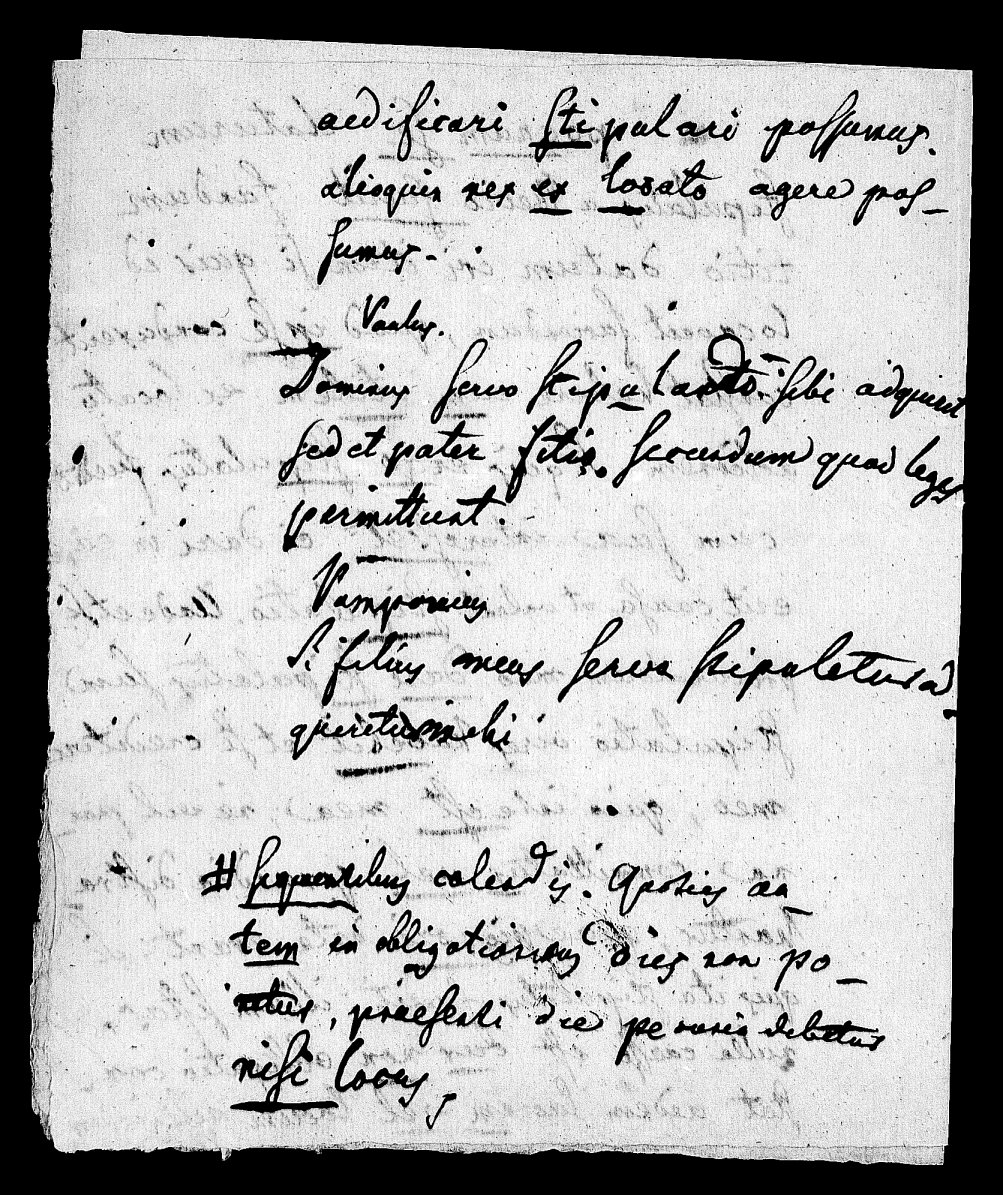 aedificari stipulari possumus.
alioquin nec ex locato agere pos-
sumus.
Paulus.
Dominus servo stipulando sibi adquirit
sed et pater filio. secundum quod leges
permittunt.
Pomponius
Si filius meus servo stipuletur ad-
quiretur mihi
# sequentibus calendis. Quoties au-
tem in obligationibus dies non po-
nitur, praesenti die pecunia debetur
nisi locus,